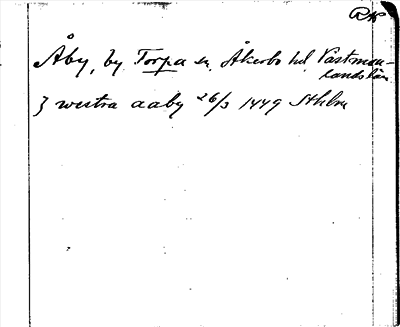 RA
Åby, by Torpa sn, Åkerbo hd, Västman-
landslän
ʒ westra aaby 26/3 1449 Sthlm